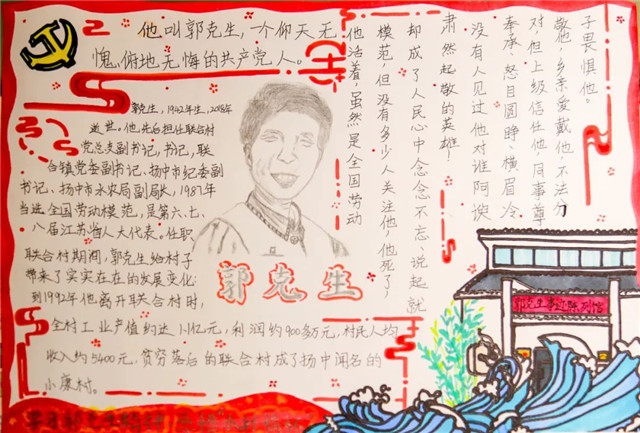 他叫郭克生,一个仰天无
愧、俯地无悔的共产党人。
郭克生,1942年生,
逝世。他先后担任联合村
党总支副书记,书记,联
合镇党委副书记、扬中市纪委副
书记、扬中市水农局副局长,1987年
当选全国劳动模范,是第六、七、
八届江苏省人大代表。任职
联合村期间,郭克生给村子
带来了实实在在的发展变化
到1992年他离开联合村时,
全村工业产值约达1.1亿元,利润约900多万元,村民人均
收入约5400元,贫穷落后的联合村成了扬中闻名的
小康村。
郭克生
他活着,虽然是全国劳动
模范,但没有多少人关注他,他死了,
却成了人民心中念念不忘、说起就
肃然起敬的英雄!
没有人见过他对谁阿谀
奉承、怒目圆睁、横眉冷
对,但上级信任他,同事尊
敬他,乡亲爱戴他,不法分
子畏惧他。
郭克生事迹陈列馆